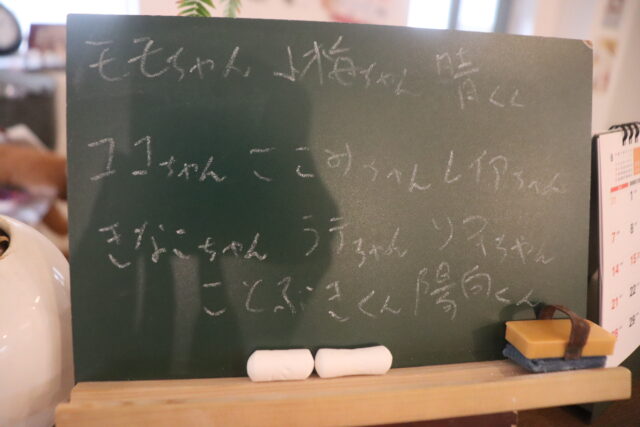 モモちゃん 小梅ちゃん 晴くん
ココちゃん ここみちゃん レイアちゃん
きなこちゃん うララちゃん リアちゃん
ことぶきくん 陽向くん